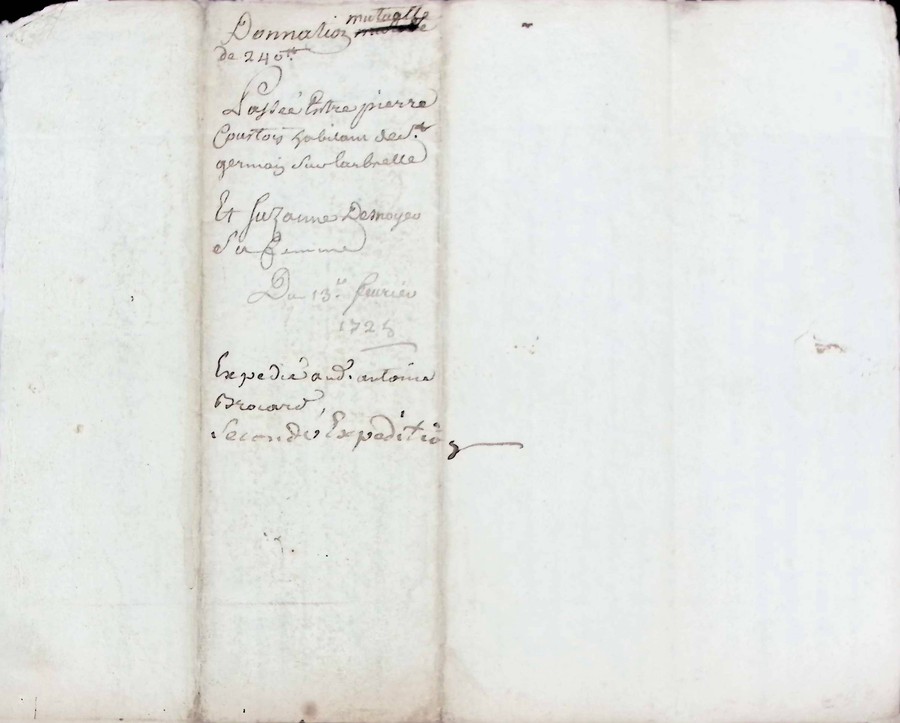 Donnation mutuelle
de 240 tt
Passeé Entre pierre
Courtois habitant de St
germain Sur larbrelle
Et Suzanne Demoyeu
Sa femme
Du 13e fevrier
1725
Expedié aud. antoine
Brocard,
Seconde Expedition